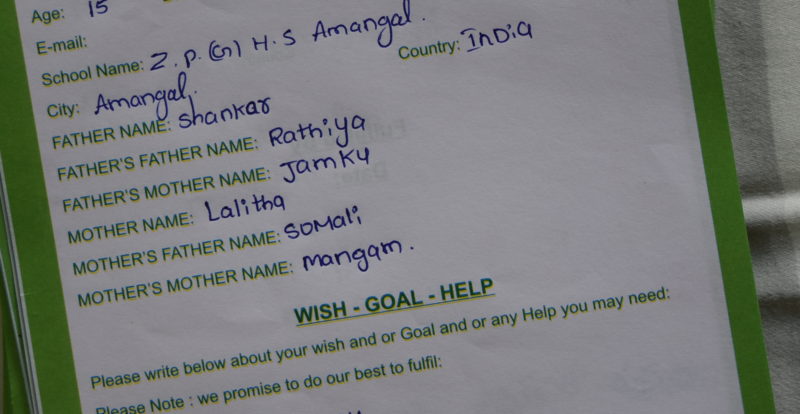 Age: 15
E-mail:
School Name: Z. P. (G) H. S Amangal.
City: Amangal. Country: InDia
FATHER NAME: Shankar
FATHER'S FATHER NAME: Rathiya
FATHER'S MOTHER NAME: Jamky
MOTHER NAME: Lalitha
MOTHER'S FATHER NAME: SOMali
MOTHER'S MOTHER NAME: mangam.
WISH - GOAL - HELP
Please write below about your wish and or Goal and or any Help you may need:
Please Note : we promise to do our best to fulfil: